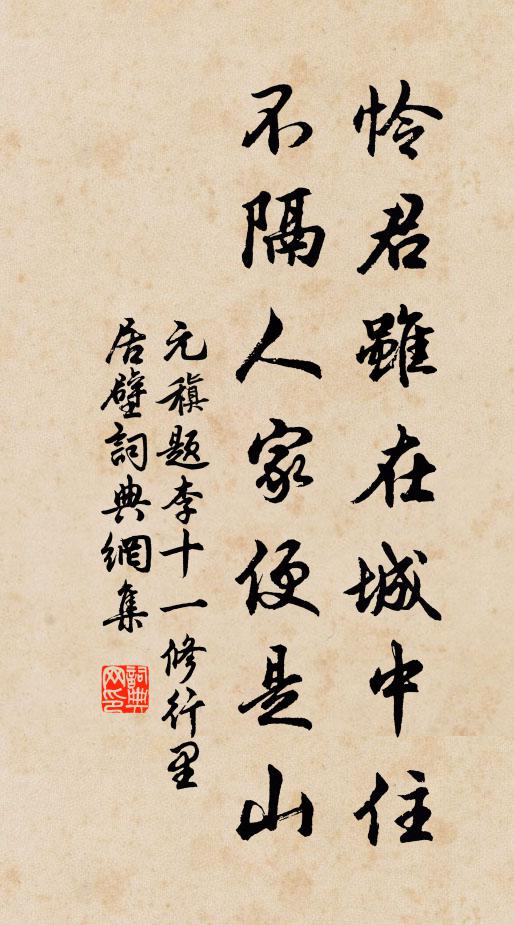 怜君雖在城中住
不隔人家便是山
元稹題李十一修行里
居壁詞典網集
詞典網印